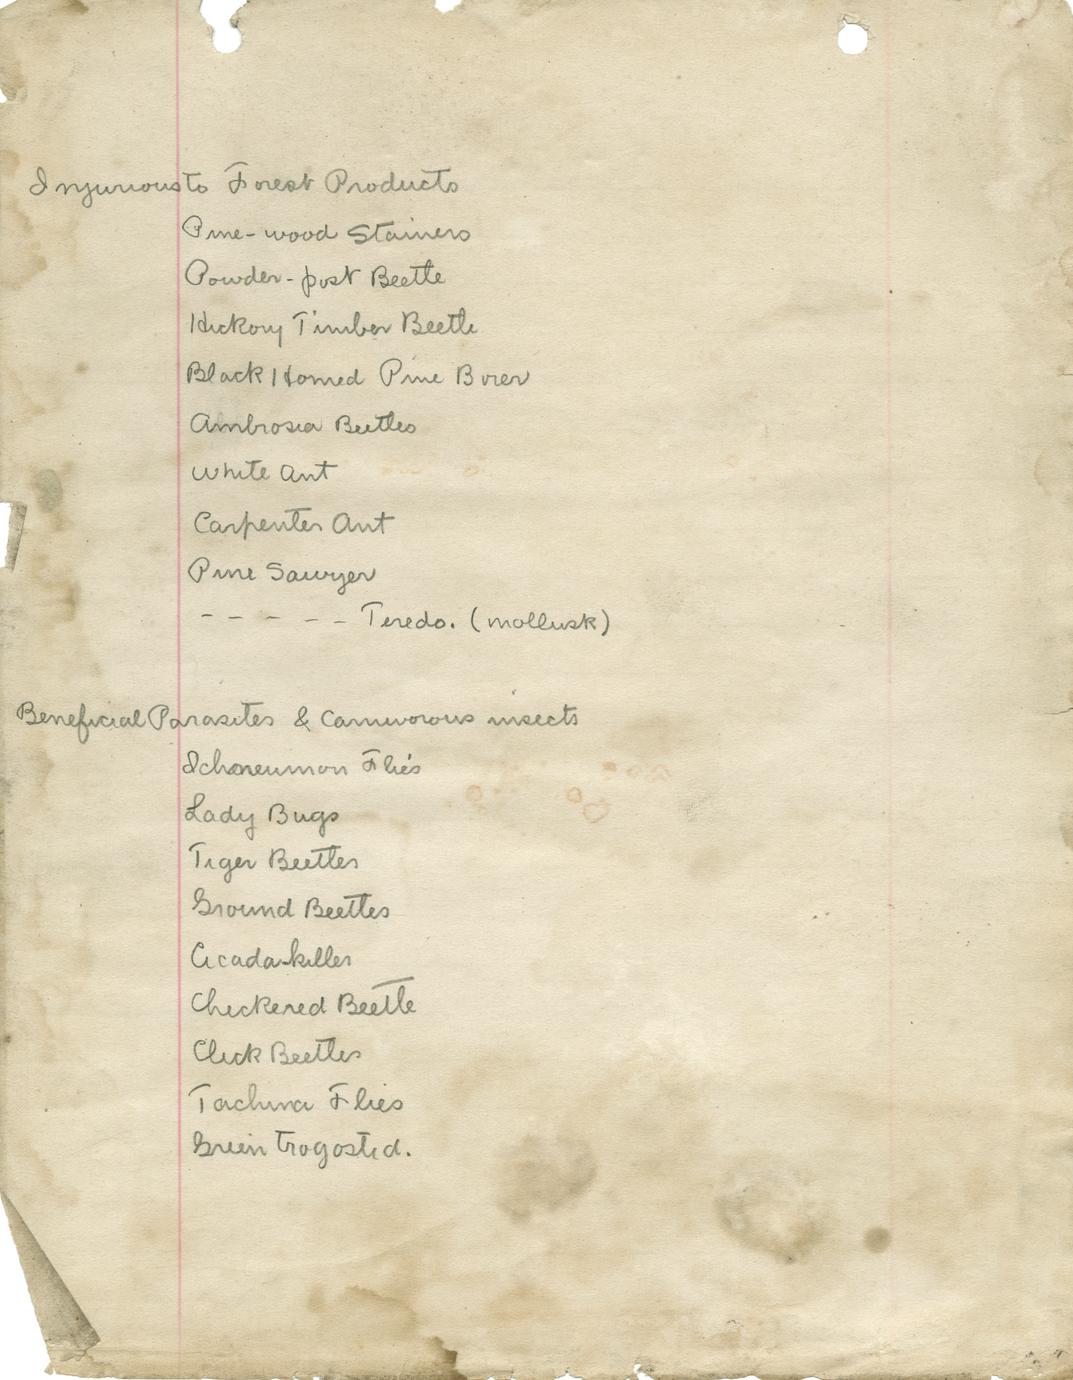 Injurious to Forest Products
Pine-wood Stainers
Powder-post Beetle
Hickory Timber Beetle
Black Horned Pine Borer
Ambrosia Beetles
White Ant
Carpenter Ant
Pine Sawyer
- - - - - Teredo. (mollusk)
Beneficial Parasites & Carnivorous insects
Ichneumon Flies
Lady Bugs
Tiger Beetles
Ground Beetles
Cicada-killer
Checkered Beetle
Click Beetles
Tachina Flies
Green trogostid.